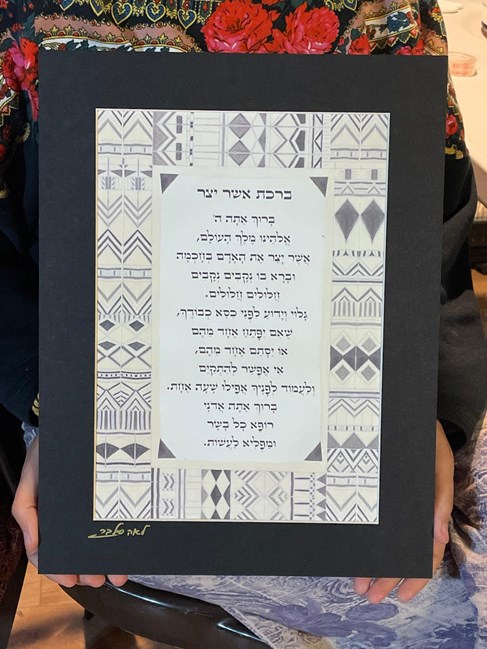 ברכת אשר יצר
בָּרוּךְ אַתָּה ה'
אֱלֹהֵינוּ מֶלֶךְ הָעוֹלָם,
אֲשֶׁר יָצַר אֶת הָאָדָם בְּחָכְמָה
וּבָרָא בוֹ נְקָבִים נְקָבִים
חֲלוּלִים חֲלוּלִים.
גָּלוּי וְיָדוּעַ לִפְנֵי כִסֵּא כְבוֹדֶךָ,
שֶׁאִם יִפָּתֵחַ אֶחָד מֵהֶם
אוֹ יִסָּתֵם אֶחָד מֵהֶם,
אִי אֶפְשָׁר לְהִתְקַיֵּם
וְלַעֲמוֹד לְפָנֶיךָ אֲפִילוּ שָׁעָה אֶחָת.
בָּרוּךְ אַתָּה אֲדֹנָי
רוֹפֵא כָל בָּשָׂר
וּמַפְלִיא לַעֲשׂוֹת.
לאה